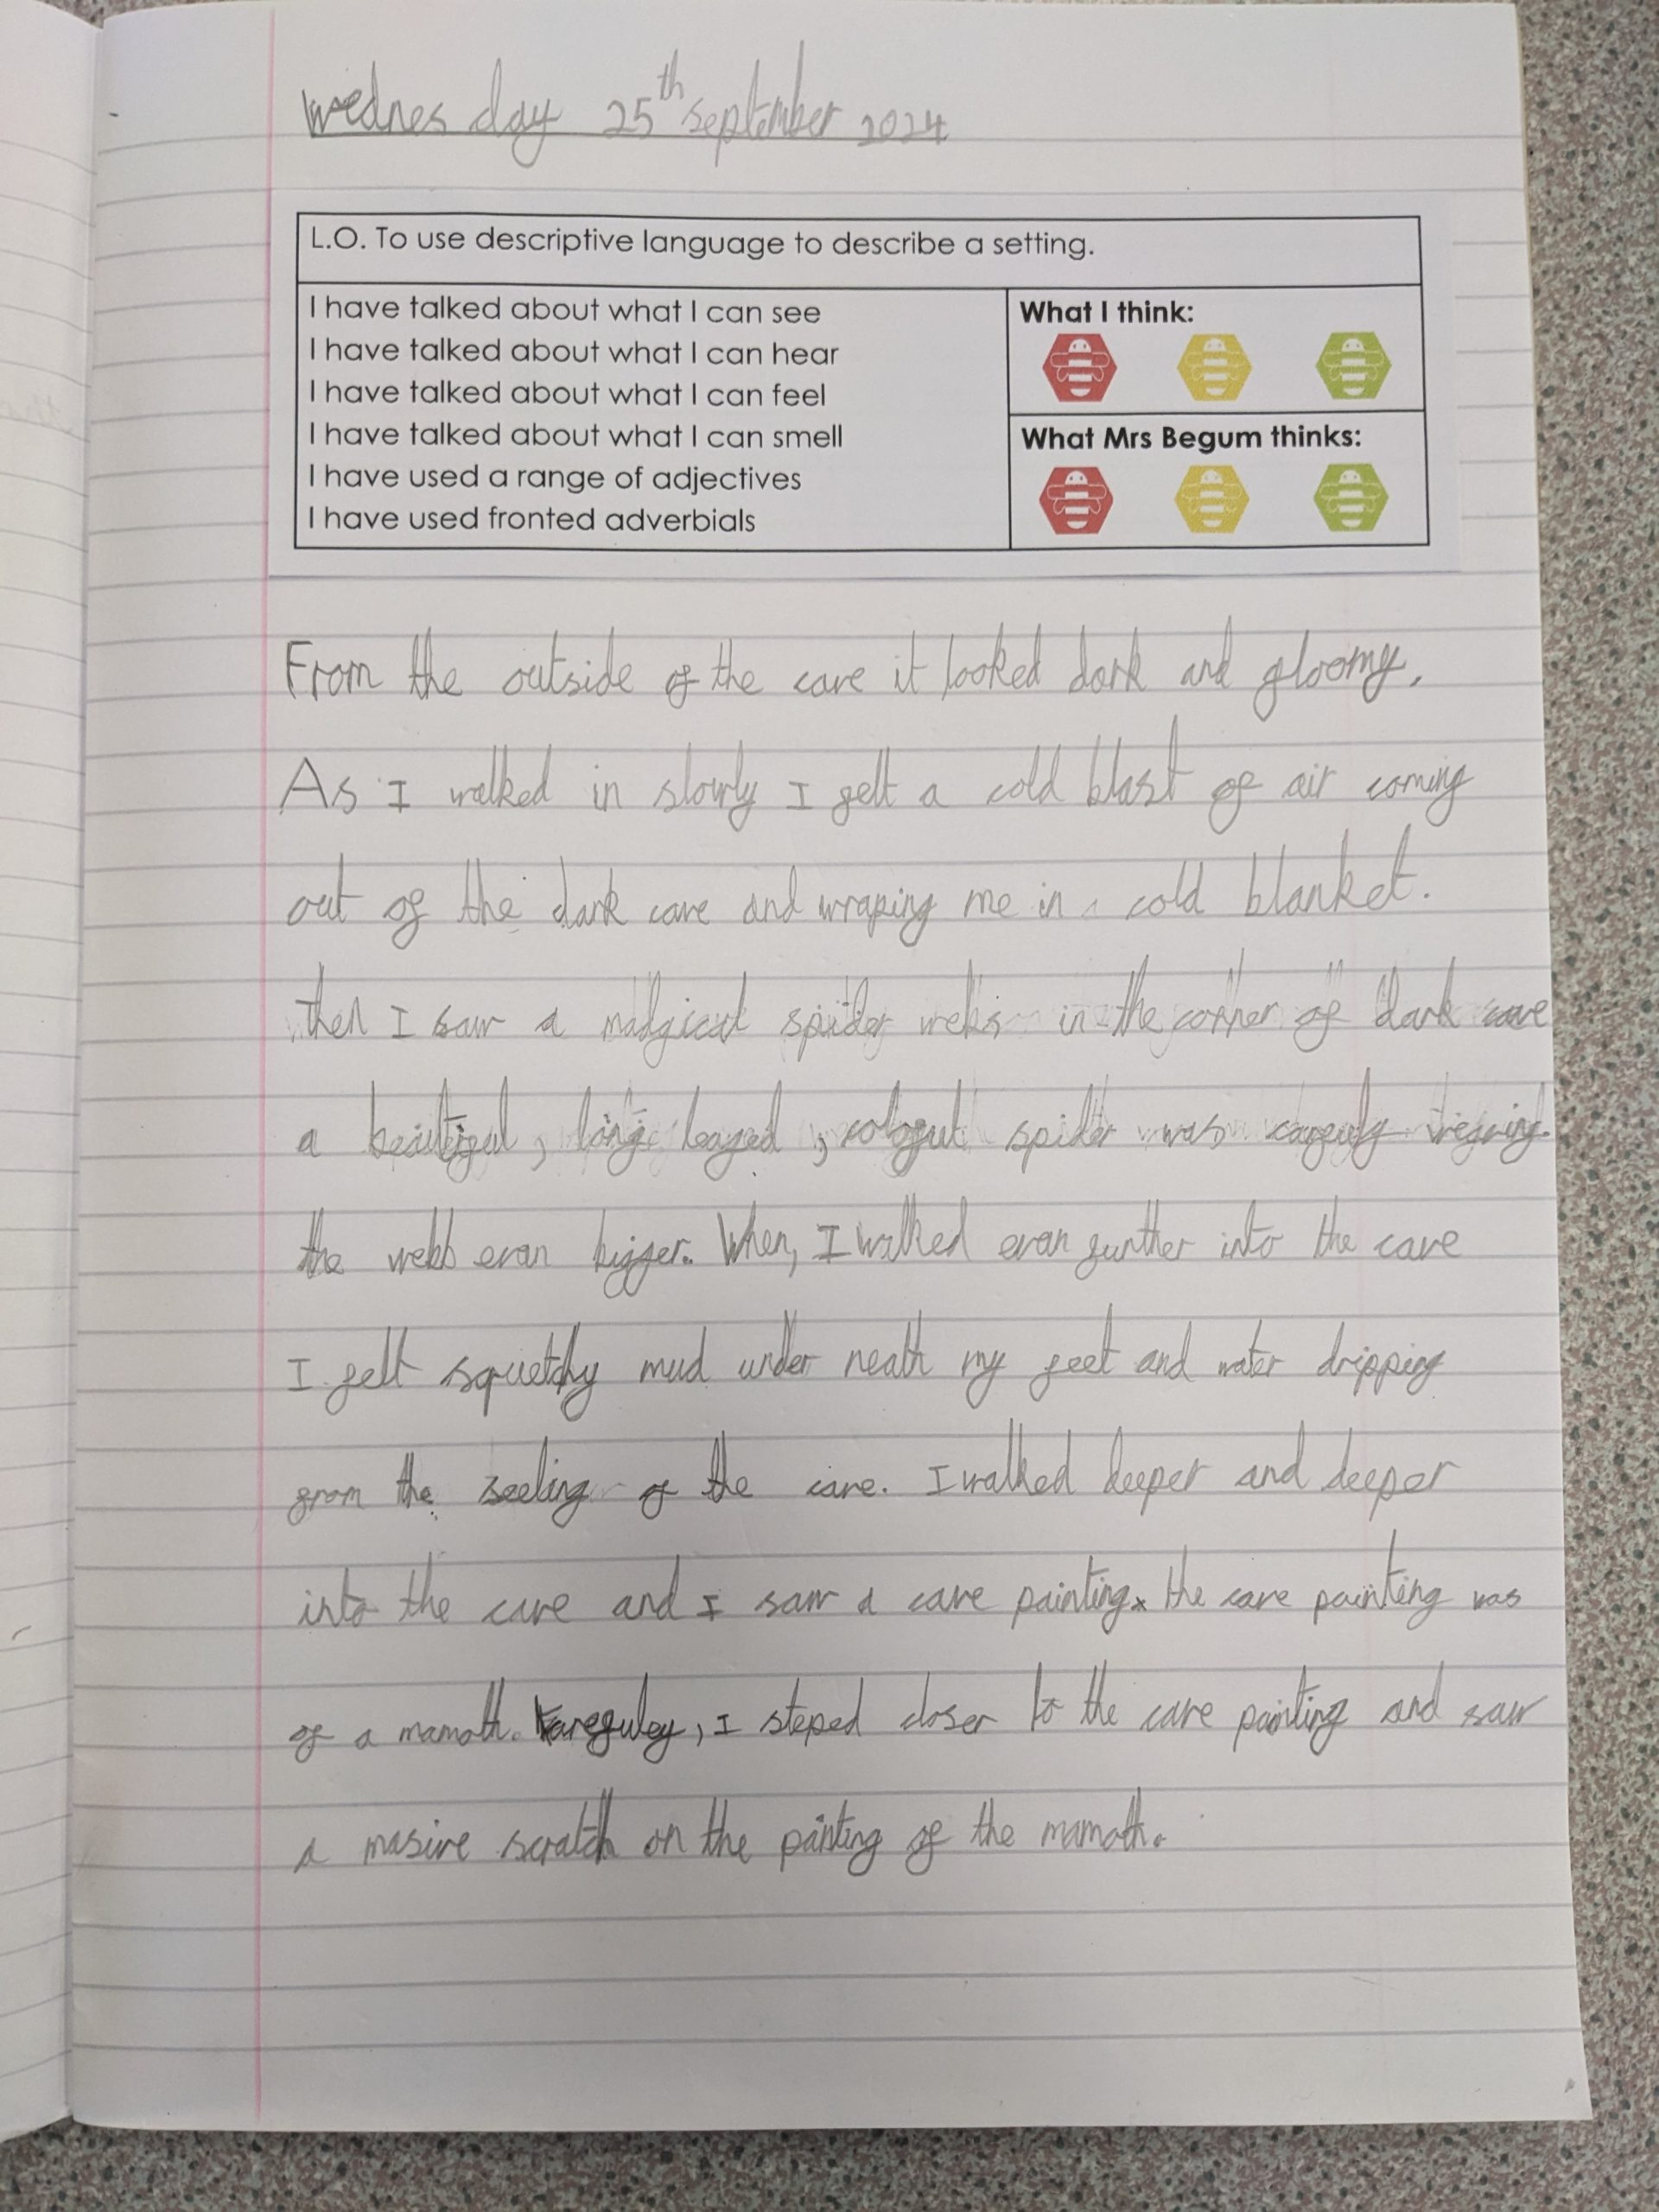 Wednes day 25th september 2024
L.O. To use descriptive language to describe a setting.
I have talked about what I can see
I have talked about what I can hear
I have talked about what I can feel
I have talked about what I can smell
I have used a range of adjectives
I have used fronted adverbials
What I think:
What Mrs Begum thinks:
From the outside of the cave it looked dark and gloomy.
As I walked in slowly I felt a cold blast of air coming
out of the dark cave and wraping me in a cold blanket.
then I saw a madgical spider webs in the corner of dark cave
a beautiful, long leaged, spider was
the webb evan bigger. When, I walked evan further into the cave
I felt squetchy mud under neath my feet and water dripping
from the seeling of the cave. I walked deeper and deeper
into the cave and I saw a cave painting. the cave painting was
of a mamoth. Karefuley, I steped closer to the cave painting and saw
a masive scratch on the painting of the mamoth.